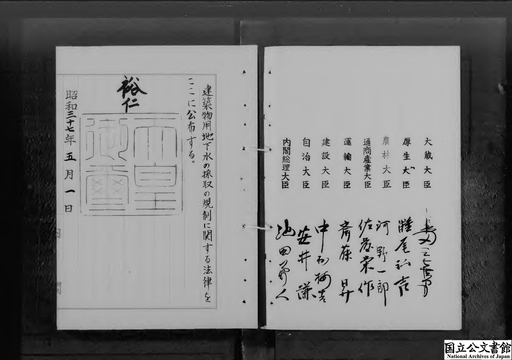 大蔵大臣
厚生大臣 灘尾弘吉
農林大臣 河野一郎
通商産業大臣 佐藤栄作
運輸大臣 斎藤昇
建設大臣 中村梅吉
自治大臣 安井謙
内閣総理大臣 池田勇人
建築物用地下水の採取の規制に関する法律を
ここに公布する。
裕仁
天皇
御璽
昭和三十七年五月一日
国立公文書館
National Archives of Japan